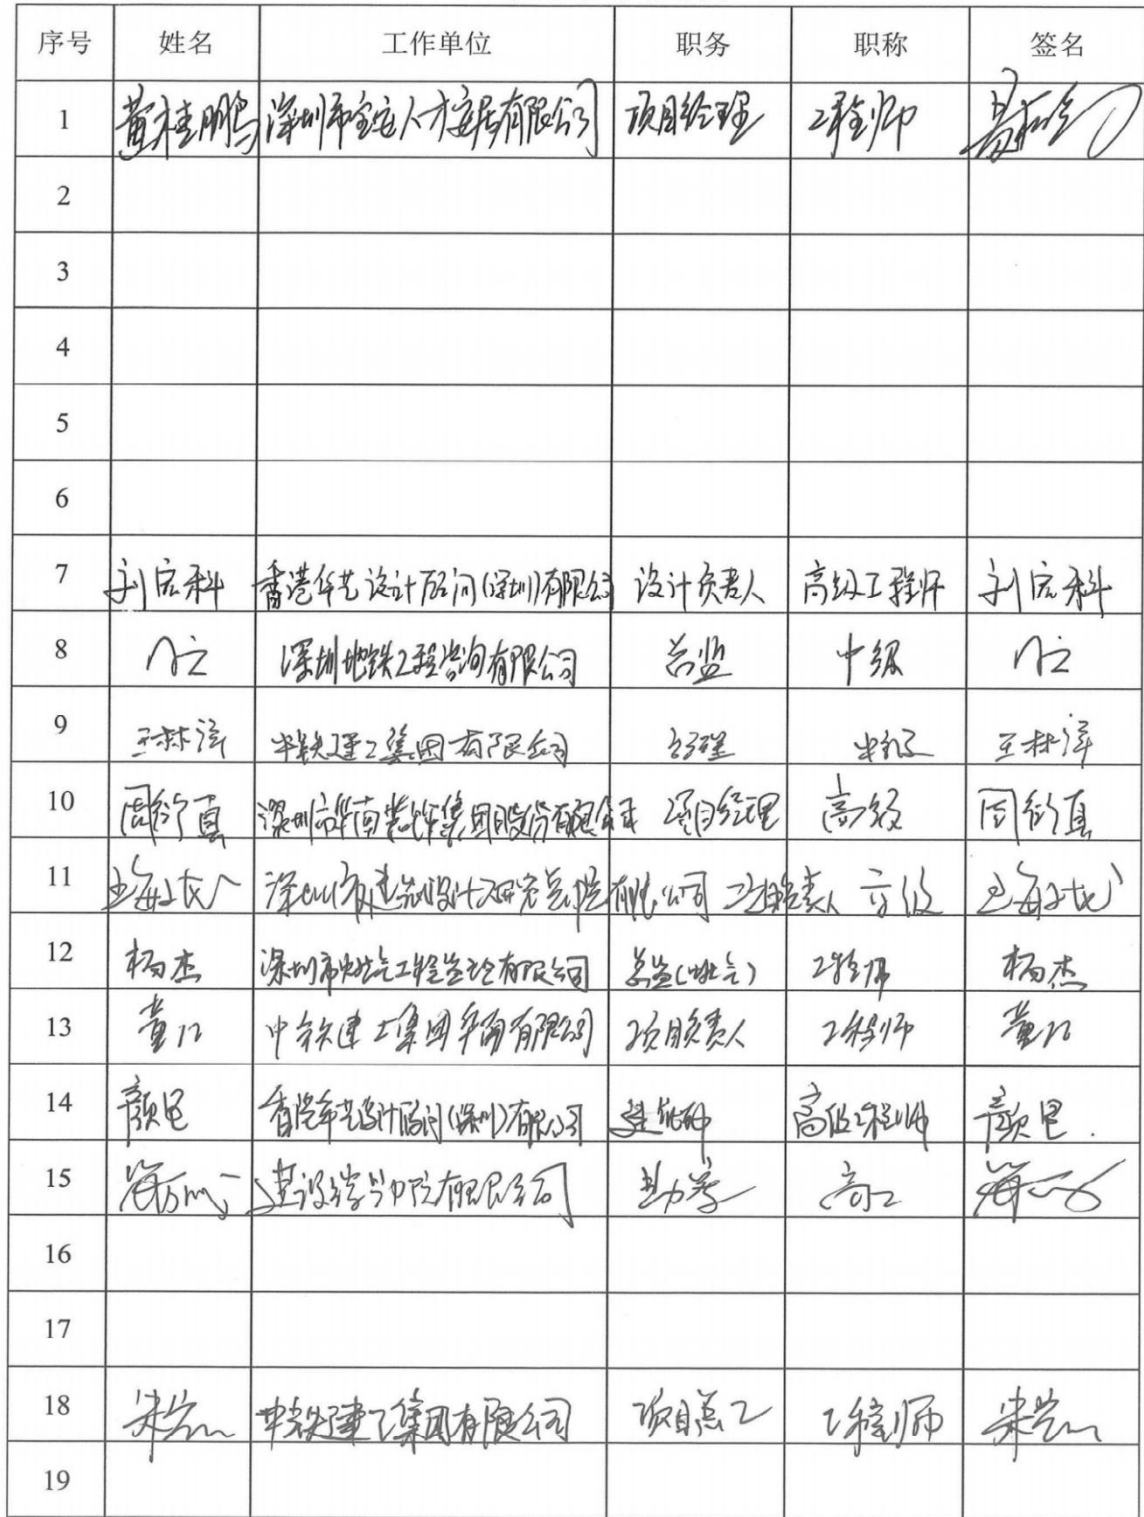 序号 姓名 工作单位 职务 职称 签名
1 黄桂鹏 深圳市宝安人才安居有限公司 项目经理 工程师
2
3
4
5
6
7 刘宏科 香港华艺设计顾问(深圳)有限公司 设计负责人 高级工程师 刘宏科
8 深圳地铁工程咨询有限公司 总监 中级
9 王林洋 中铁建工集团有限公司 中级 王林洋
10 周衍真 深圳市华南装饰集团股份有限公司 项目经理 高级 周衍真
11 深圳市建筑设计研究总院有限公司 负责人 高级
12 杨杰 深圳市燃气工程监理有限公司 总监(燃气) 工程师 杨杰
13 董 中铁建工集团华南有限公司 项目负责人 工程师 董
14 颜 香港华艺设计顾问(深圳)有限公司 高级工程师 颜
15 建设综合勘 院有限公司 勘察 高工
16
17
18 宋 中铁建工集团有限公司 项目总工 工程师 宋
19